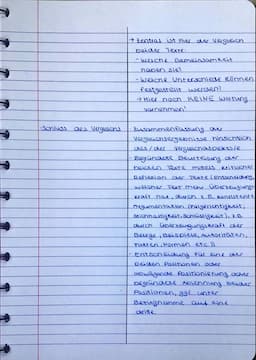 → Zentral ist hier der Vergleich
beider Texte:
- Welche Gemeinsamkeit
haben sie?
- Welche Unterschiede können
festgestellt werden?
→ Hier noch KEINE Wertung
vornehmen!
Schluss des Vergleichs
Zusammenfassung der
Vergleichsergebnisse hinsichtlich
des/der Vergleichsaspekts/e
Begründete Beurteilung der
beiden Texte mittels kritischer
Reflexion der Texte (Entscheidung,
welcher Text mehr Überzeugungs-
kraft hat, durch z.B. konsistente
Argumentation (Folgerichtigkeit,
Stichhaltigkeit, Schlüssigkeit), z.B.
durch Überzeugungskraft der
Belege, Beispiele, Autoritäten,
Fakten, Normen etc.))
Entscheidung für eine der
beiden Positionen oder
abwägende Positionierung oder
begründete Ablehnung beider
Positionen, ggf. unter
Bezugnahme auf eine
dritte.